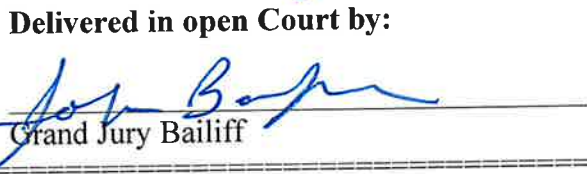 Delivered in open Court by:
John
Grand Jury Bailiff